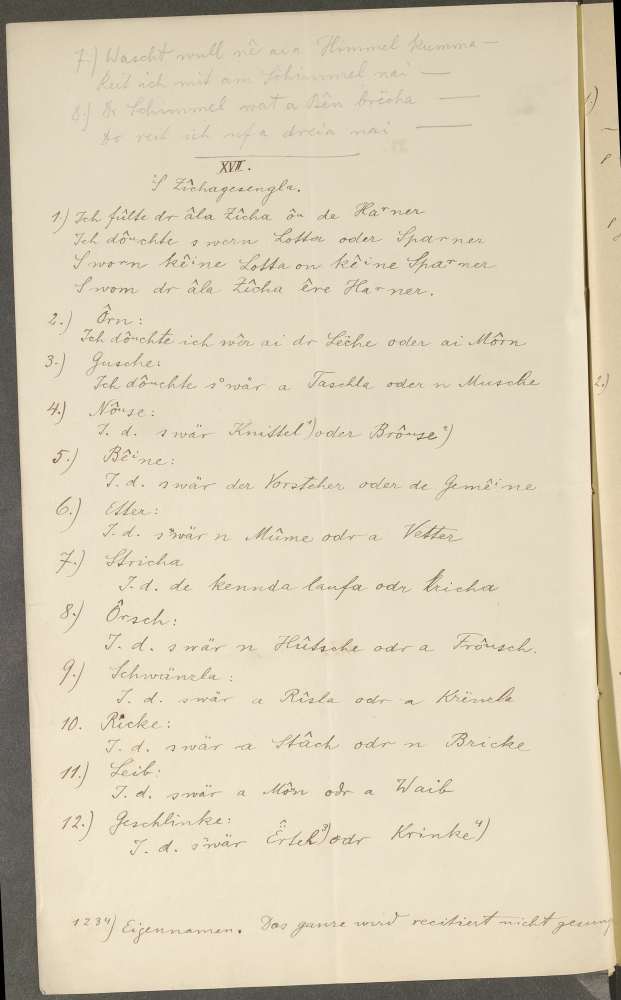 7.) Wascht wull nê ai a Himmel kumma —
Reit ich mit am Schimmel nai —
8.) Dr Schimmel wat a Bên brëcha —
Do reit ich uf a dreia nai —
XVII.
's Zîchagesengla.
1.) Ich fûlte dr âla Zîcha ôn de Harner
Ich dôuchte s wern Lotta oder Sparner
S worn kêine Lotta on kêine Sparner
S worn dr âla Zîcha êre Harner.
2.) Ôrn:
Ich dôuchte ich wêr ai dr Lêche oder ai Môrn
3.) Gusche:
Ich dôuchte s' wâr a Taschla oder n Musche
4.) Nôuse:
I. d. s wär Knittel ¹) oder Brôuse ²)
5.) Bêine:
I. d. s wär der Vorsteher oder de Gemêine
6.) Etter:
I. d. s' wär n Mûme odr a Vetter
7.) Stricha
I. d. de kennda laufa odr kricha
8.) Ôrsch:
I. d. s wär n Hûtsche odr a Frôusch.
9.) Schwänzla:
I. d. s wär a Rîsla odr a Krënzla
10. Ricke:
I. d. s wär a Stâch odr n Bricke
11.) Leib:
I. d. s wär a Môn odr a Waib
12.) Geschlinke:
I. d. s' wär Êrtel ³) odr Krinke ⁴)
1 2 3 4) Eigennamen. Das ganze wird recitiert nicht gesung